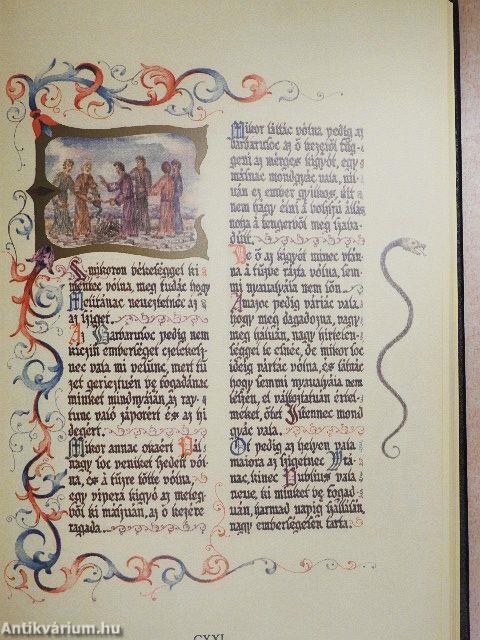 Amikoron békeséggel ki
mentec vólna, meg tudác hogy
Melitánac neveztetnéc az
az sziget.
Az Barbarusoc pedig nem
kiczin emberséget czelekeß-
nec vala mi velünc, mert tü
zet geriesztuén be fogadánac
minket mindnyáián, az ray-
tunc való záporért és az hi
degért.
Mikor annac okaért Pál
nagy soc veniket szedett vól-
na, és a tüzre tötte vólna,
egy vipera kigyo az meleg-
ből ki mászuán, az ő kezére
ragada.
Mikor láttác vólna pedig az
barbarusoc az ő kezéről füg-
geni az mérges kigyót, egy
másnac mondgyác vala, nil-
uán ez ember gyilkos, kit
nem hágy élni à boßszu állás
noha à tengerből meg szaba-
dúlt.
De ő az kigyót minec vtán-
na à tüzbe rázta vólna, sem-
mi nyaualyáia nem lőn.
Amazoc pedig váriác vala
hogy meg dagadozna, nagy
meg haluán, nagy hirtelen-
séggel le esnéc, de mikor soc
ideig váriác vólna, és látnác
hogy semmi nyaualyáia nem
lenne, el változtatuán értel-
meket, ötet Istennec mond
gyác vala.
Ot pedig az helyen vala
maiora az szigetnec Vrá-
nac, kinec Publius vala
neue, ki minket be fogad-
uán, harmad napig szállásán,
nagy emberségesen tarta.
CXXI
Antikvárium.hu